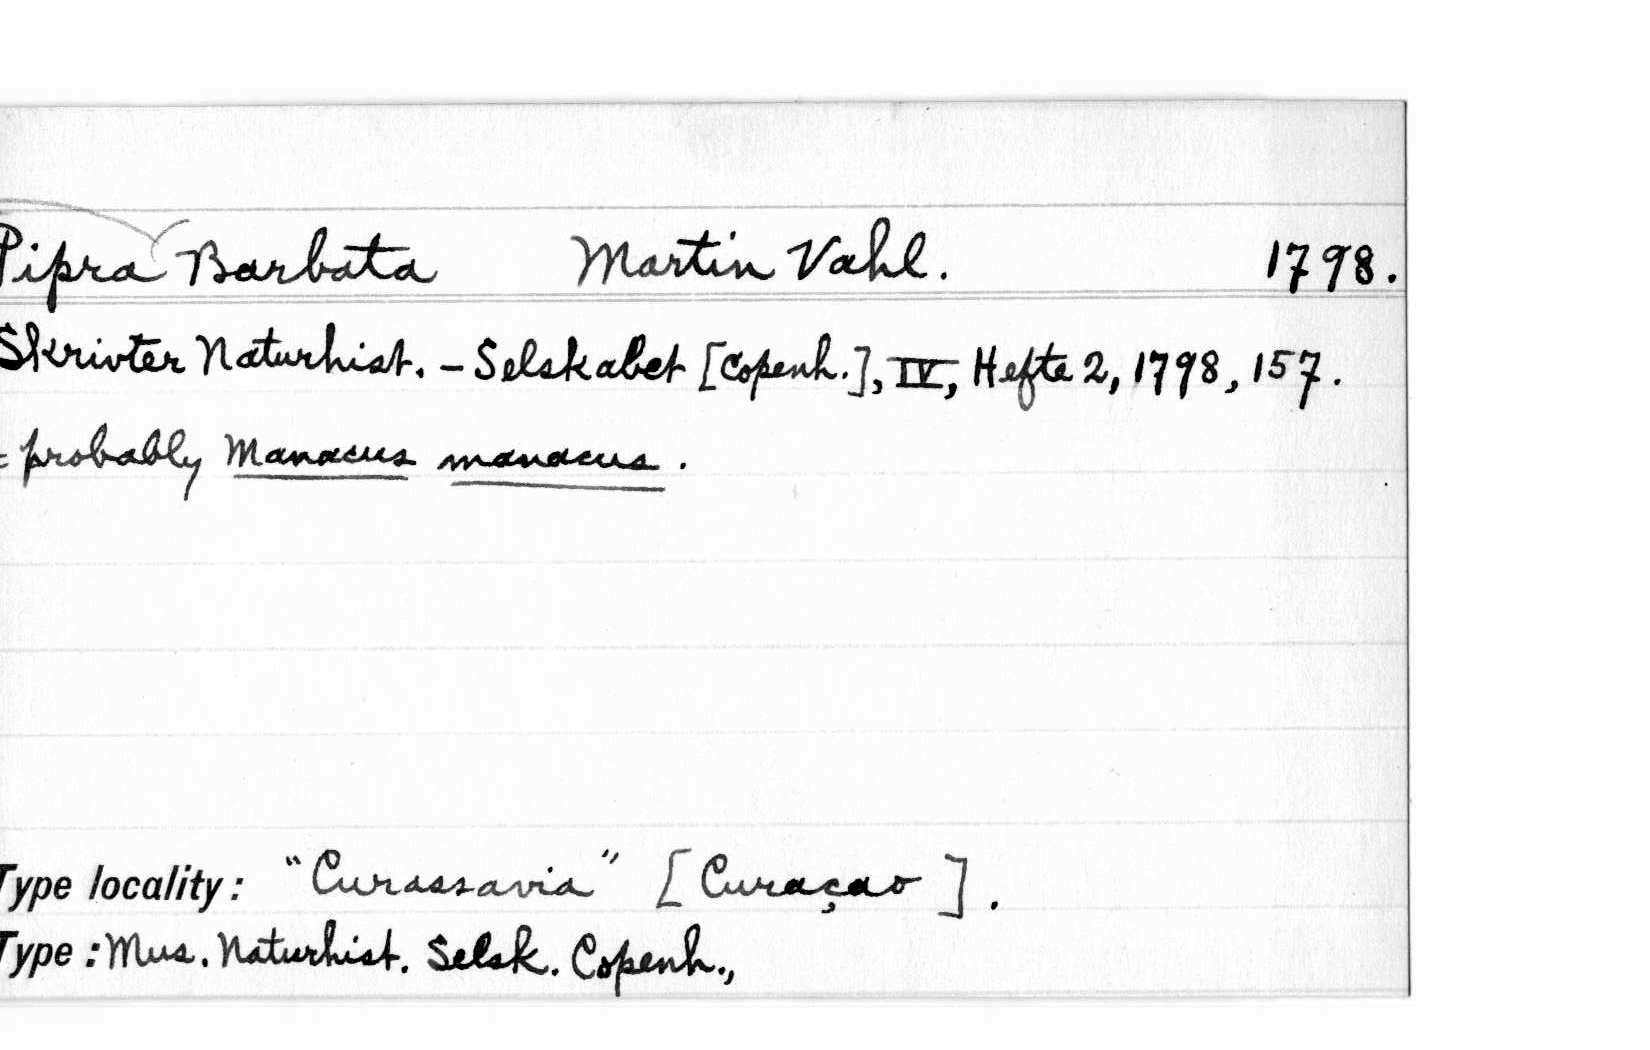 Pipra Barbata Martin Vahl. 1798.
Skrivter Naturhist. - Selskabet [Copenh.], IV, Hefte 2, 1798, 157.
= probably Manacus manacus.
Type locality: "Curassavia" [Curaçao].
Type: Mus. Naturhist. Selsk. Copenh.,